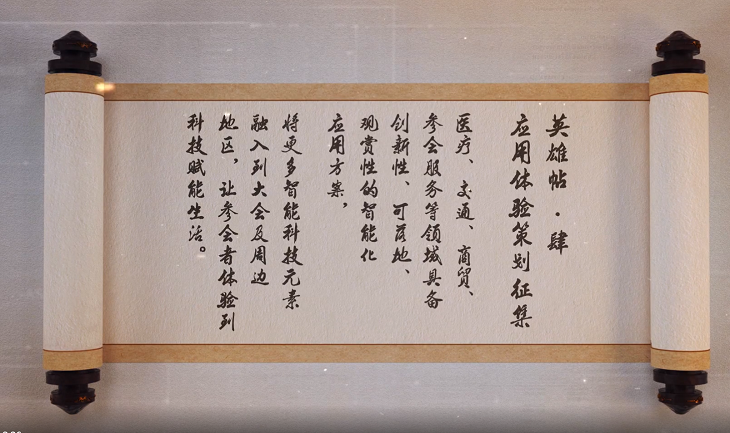 英雄帖·肆
应用体验策划征集
医疗、交通、商贸、
参会服务等领域具备
创新性、可落地、
观赏性的智能化
应用方案，
将更多智能科技元素
融入到大会及周边
地区，让参会者体验到
科技赋能生活。